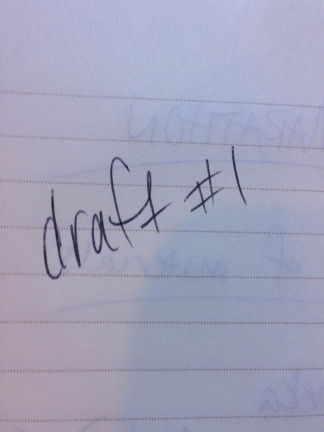 draft #1